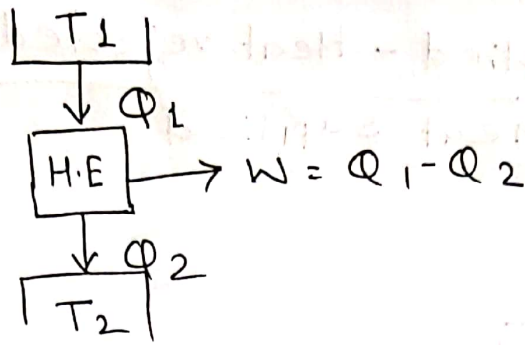 T1
Q1
H.E
W = Q1-Q2
Q2
T2